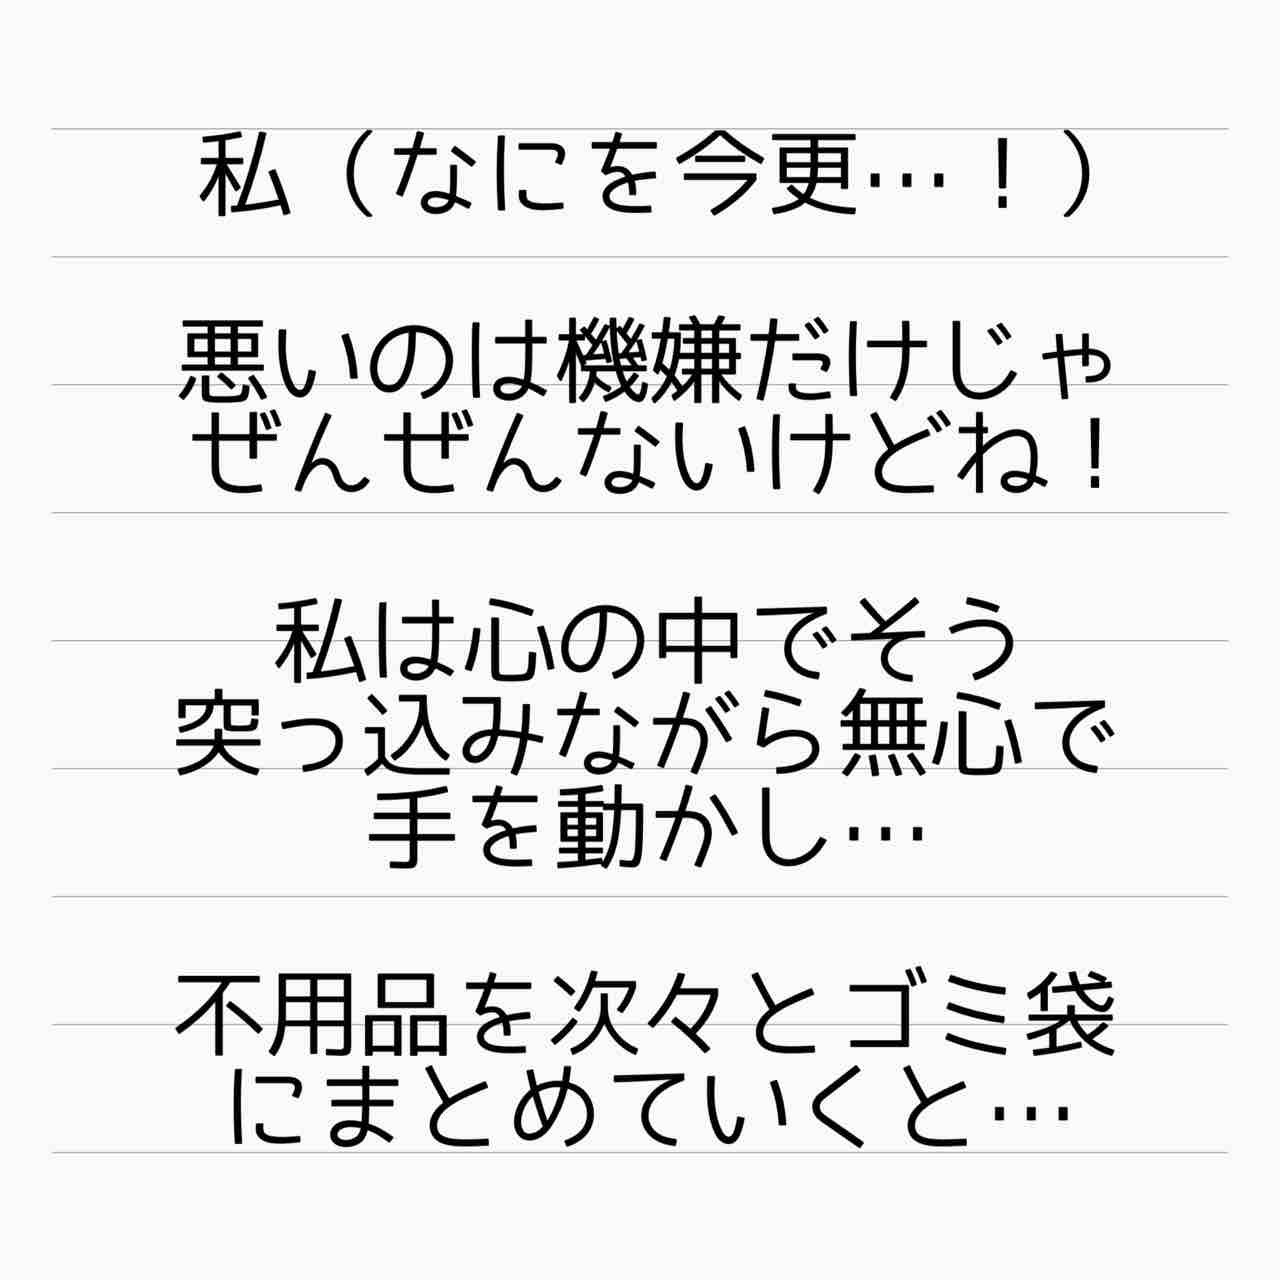 私（なにを今更…！）
悪いのは機嫌だけじゃ
ぜんぜんないけどね！
私は心の中でそう
突っ込みながら無心で
手を動かし…
不用品を次々とゴミ袋
にまとめていくと…